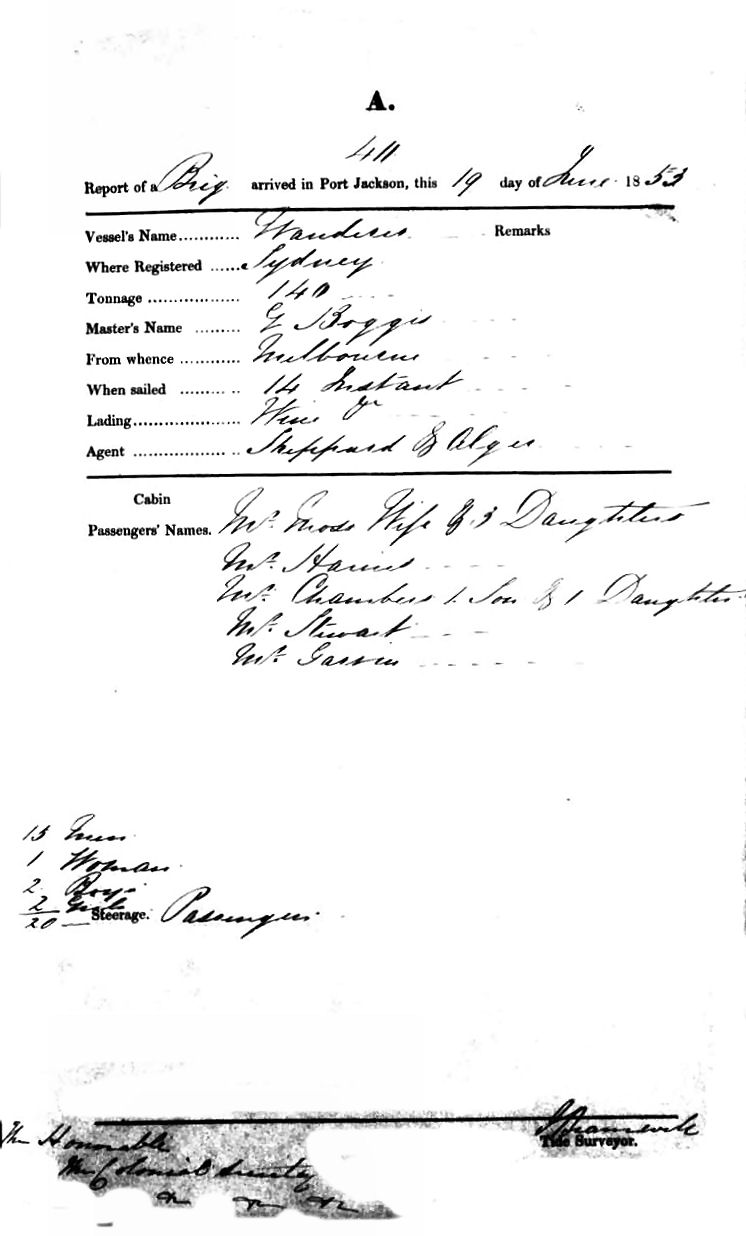 A.
411
Report of a Brig arrived in Port Jackson, this 19 day of June 1853
Vessel's Name Wanderer Remarks
Where Registered Sydney
Tonnage 140
Master's Name Boggis
From whence Melbourne
When sailed 14 Instant
Lading Wine &c
Agent Sheppard & Alger
Cabin
Passengers' Names. Mr. Moss Wife & 3 Daughters
Mr. Harris
Mr. Chambers 1 Son & 1 Daughter
Mr. Stewart
Mr.
15 Men
1 Woman
2 Boys
2 Girls
20 Steerage. Passengers
The Honorable
The Colonial Secretary
&c &c &c
Tide Surveyor.